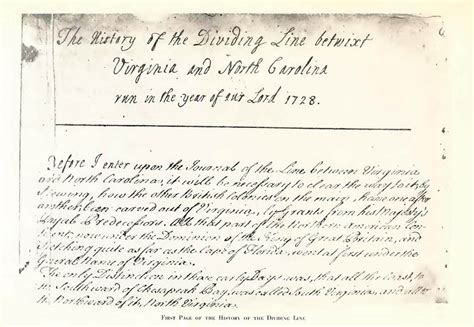 The History of the Dividing Line betwixt
Virginia and North Carolina
run in the year of our Lord 1728.
Before I enter upon the Journal of the Line between Virginia
and North Carolina, it will be necessary to clear the way to it, by
shewing how the other British Colonies on the main, have one after
another been carved out of Virginia, by Grants from his Majesty's
Royal Predecessors. All that part of the Northern American Con
tinent now under the Dominion of the King of Great Britain, and
stretching quite as far as the Cape of Florida, went at first under the
General Name of Virginia.
The only Distinction in those early Days was, that all the Coast to
the Southward of Chesapeak Bay was called South Virginia, and all to
the Northward of it, North Virginia.
First Page of the History of the Dividing Line